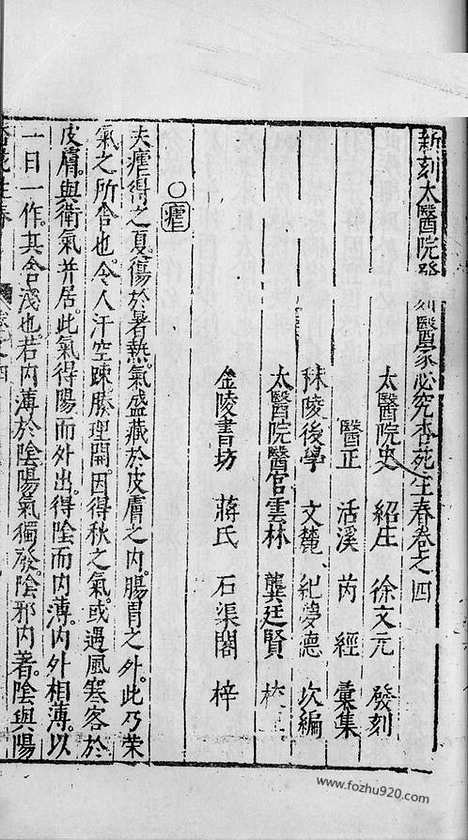 新刻太醫院發刻醫家必究杏苑生春卷之四
太醫院史 紹庄 徐文元 發刻
醫正 活溪 芮經 彙集
秣陵後學 文麓 紀夢德 次編
太醫院醫官雲林 龔廷賢 校
金陵書坊 蔣氏 石渠閣 梓
○瘧
夫瘧得之夏傷於暑熱氣盛藏於皮膚之內腸胃之外此乃榮
氣之所舍也令人汗空踈腠理開因得秋之氣或遇風寒客於
皮膚與衛氣并居此氣得陽而外出得陰而內薄內外相薄以
一日一作其舍淺也若內薄於陰陽氣獨發陰邪內著陰與陽
杏苑生春 卷之四
www.fozhu920.com